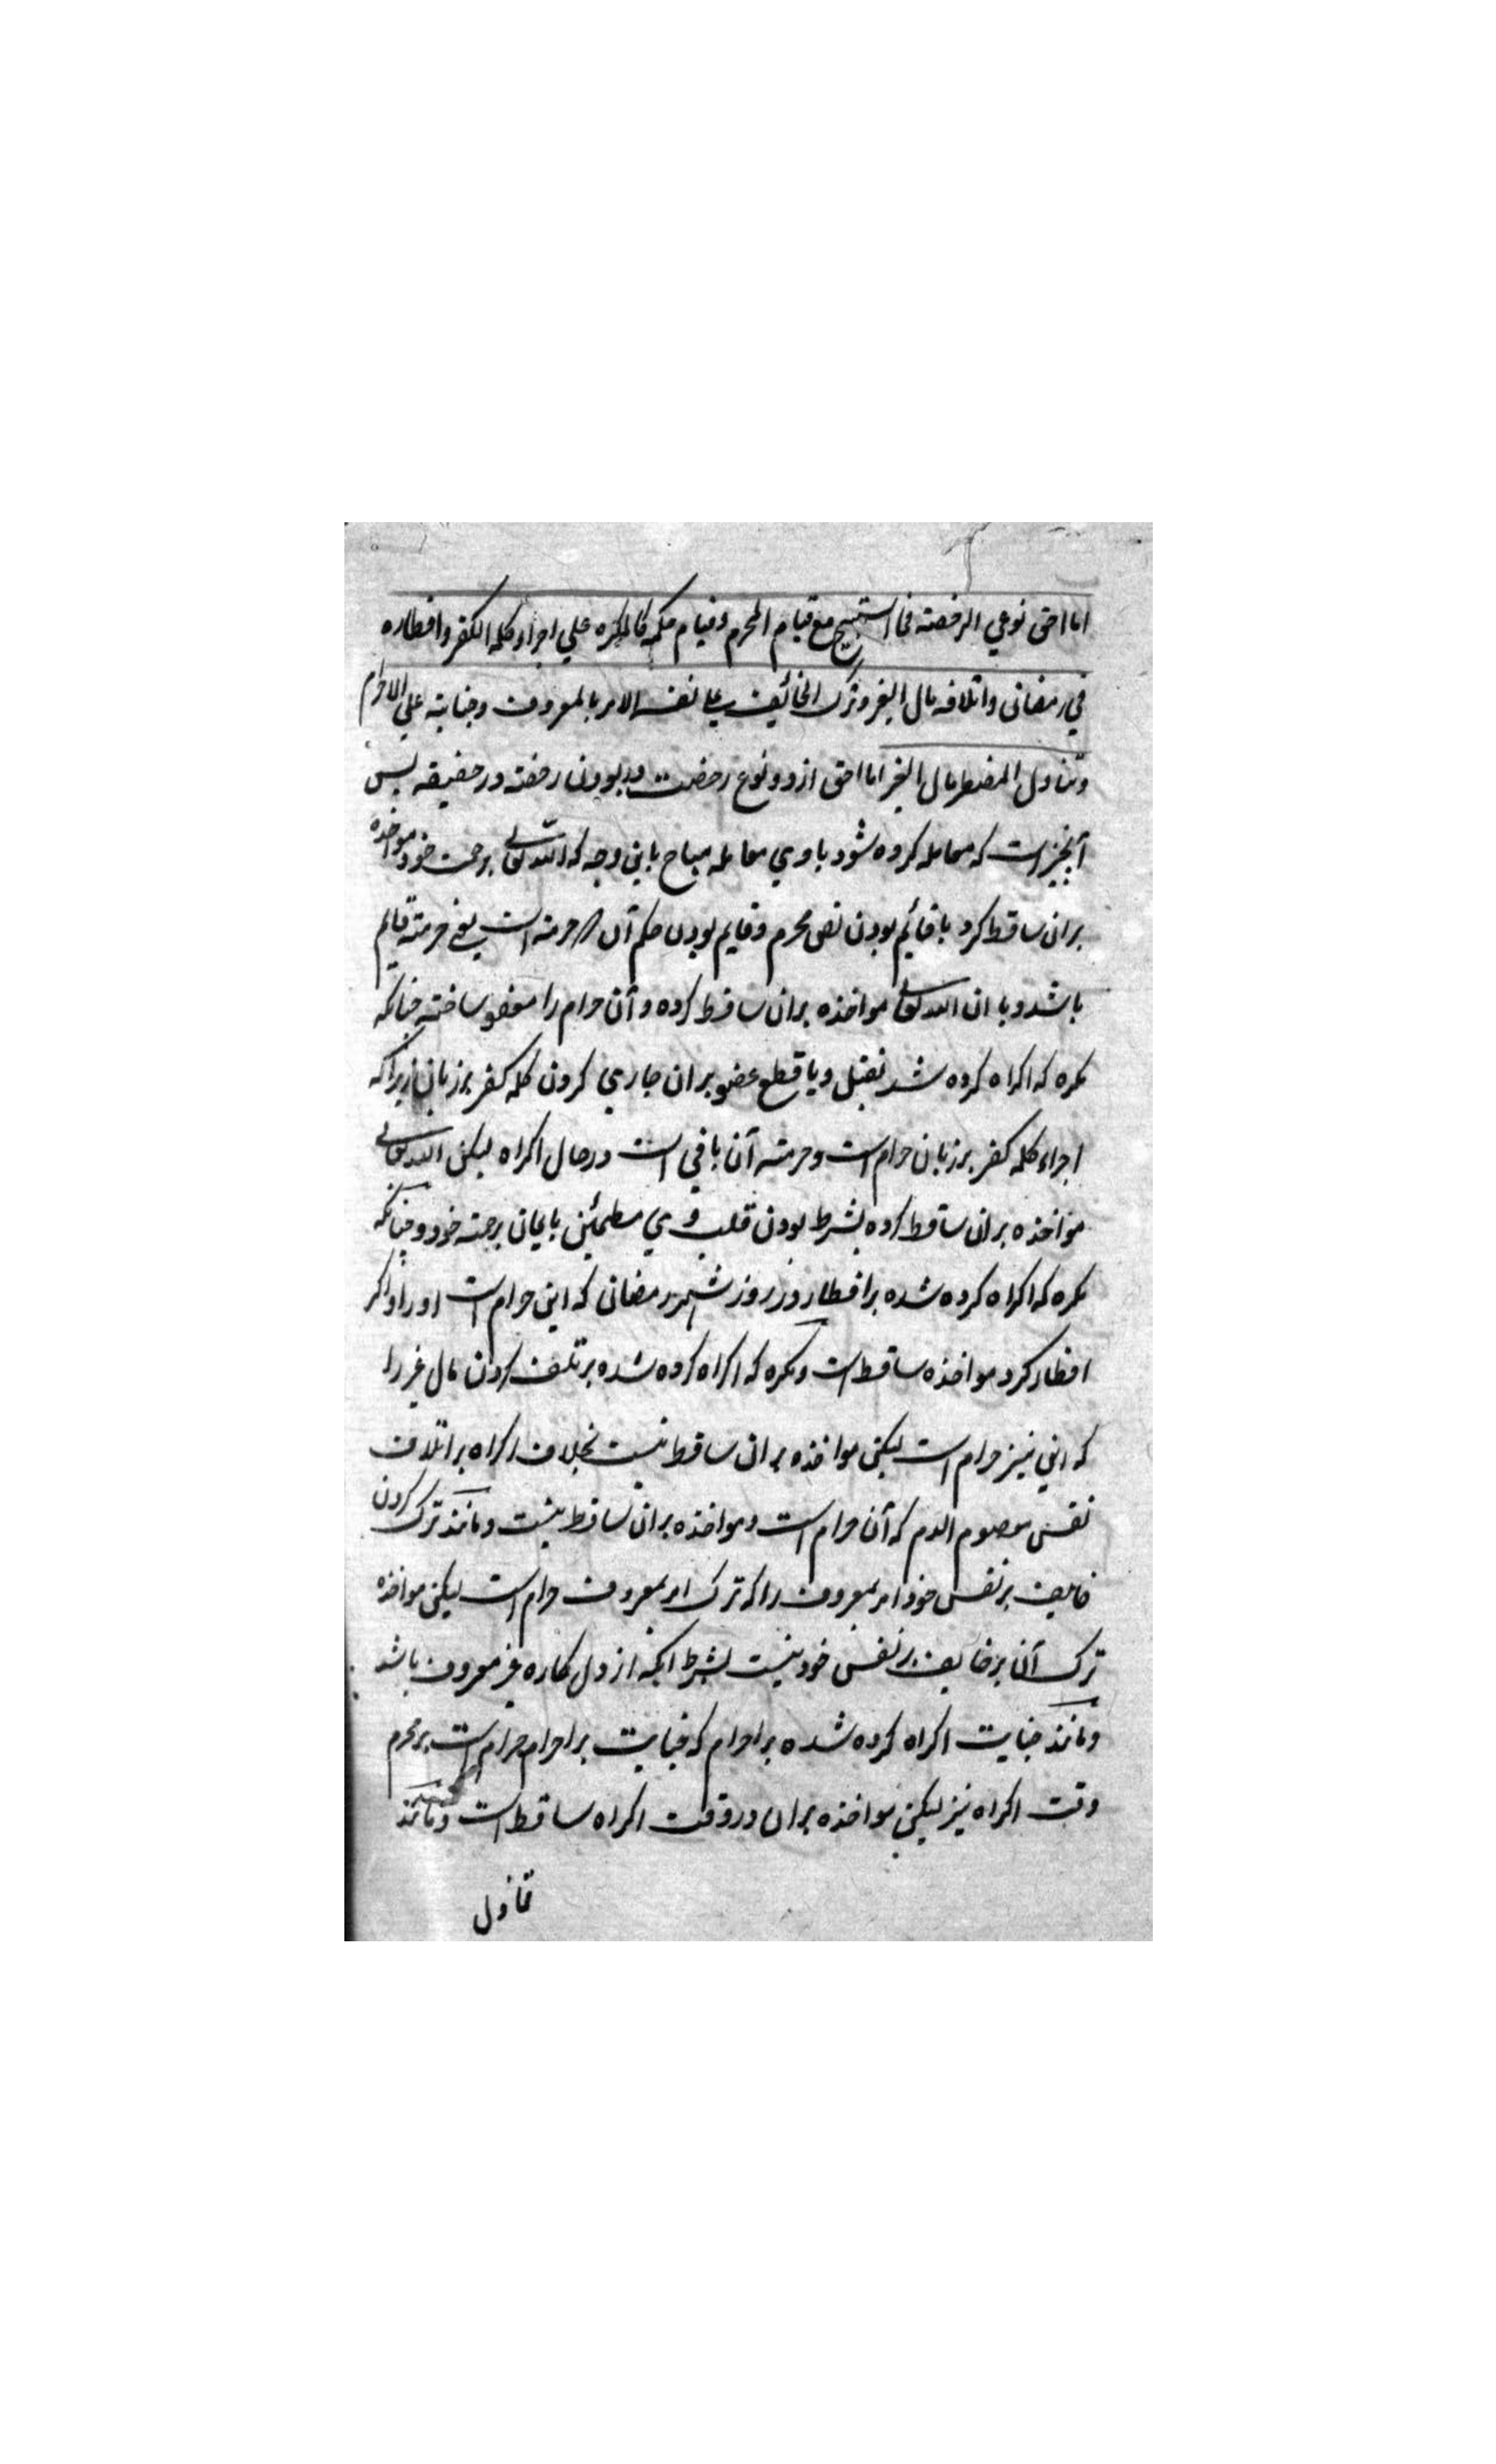 اما احق نوعي الرخصة فما استبيح مع قيام المحرم وقيام حكمه كالمكره علي اجراء كلمه الكفر وافطاره
في رمضان واتلافه مال الغير وترك الخائف علي نفسه الامر بالمعروف وجنايته علي الاحرام
وتناول المضطر مال الغير اما احق از دو نوع رخصت در بودن رخصه در حقيقه پس
آنچيز است كه معامله كرده شود با وي معامله مباح باين وجه كه الله تعالي برحمت خود مواخذه
بران ساقط كرد با قائم بودن نص محرم و قايم بودن حكم آن كه حرمة است يعني حرمة قايم
باشد و با ان الله تعالي مواخذه بران ساقط كرده و آن حرام را معفو ساخته چنانكه
مكره كه اكراه كرده شد بقتل و يا قطع عضو بران جاري كردن كلمه كفر بر زبان زيرا كه
اجراء كلمه كفر بر زبان حرام است و حرمته آن باقي است در حال اكراه ليكن الله تعالي
مواخذه بران ساقط كرده بشرط بودن قلب وي مطمئن بايمان برحمته خود و چنانكه
مكره كه اكراه كرده شده بر افطار روز روز شهر رمضان كه اين حرام است او را و اگر
افطار كرد مواخذه ساقط است و مكره كه اكراه كرده شده بر تلف كردن مال غير را
كه اين نيز حرام است ليكن مواخذه بران ساقط نيست بخلاف اكراه بر اتلاف
نفس معصوم الدم كه آن حرام است و مواخذه بران ساقط نيست و مانند ترك كردن
خايف بر نفس خود امر بمعروف را كه ترك امر بمعروف حرام است ليكن مواخذه
ترك آن بر خايف بر نفس خود نيست بشرط انكه از دل كاره غير معروف باشد
و مانند جنايت اكراه كرده شده بر احرام كه جنايت بر احرام حرام است بر محرم
وقت اكراه نيز ليكن مواخذه بران در وقت اكراه ساقط است و مانند
تناول